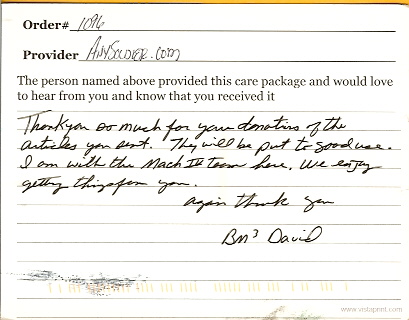 Order# 1096
Provider AnySoldier.com
The person named above provided this care package and would love
to hear from you and know that you received it
Thank you so much for your donations of the
articles you sent. They will be put to good use.
I am with the Mach IV team here. We enjoy
getting things from you.
again thank you
BM3 David
www.vistaprint.com